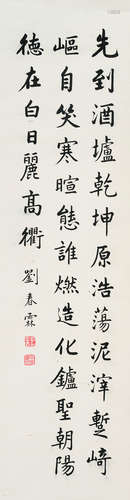 先到酒壚乾坤原浩蕩泥滓蹔崎
嶇自笑寒暄態誰燃造化鑪聖朝陽
德在白日麗高衢
劉春霖